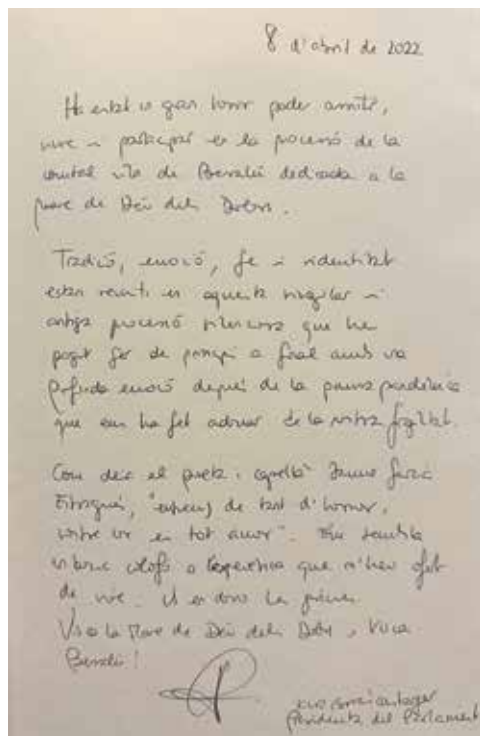 8 d'abril de 2022
Ha estat un gran honor poder assistir,
viure i participar en la processó de la
comtal vila de Besalú dedicada a la
Mare de Déu dels Dolors.
Tradició, emoció, fe i identitat
estan reunits en aquesta singular i
antiga processó silenciosa que he
pogut fer de principi a final amb una
profunda emoció després de la pausa pandèmica
que ens ha fet adonar de la nostra fragilitat.
Com deia el poeta i
de tot d'honor,
en tot amor". Em sembla
un bonic colofó a l'experiència que m'heu ofert
de viure. Us en dono les gràcies.
Visca la Mare de Déu dels Dolors, Visca
Besalú!
Presidenta del Parlament